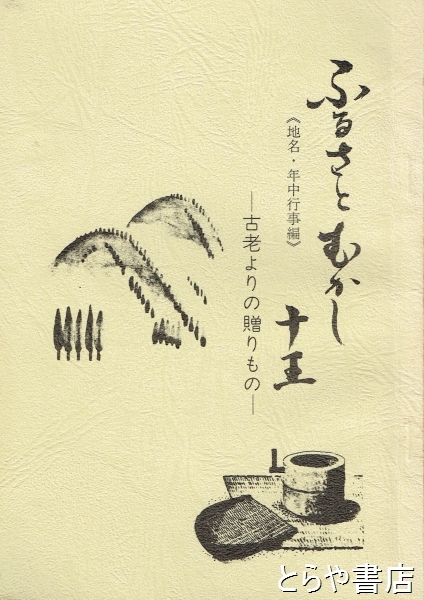 ふるさとむかし
十王
《地名・年中行事編》
―古老よりの贈りもの―
とらや書店